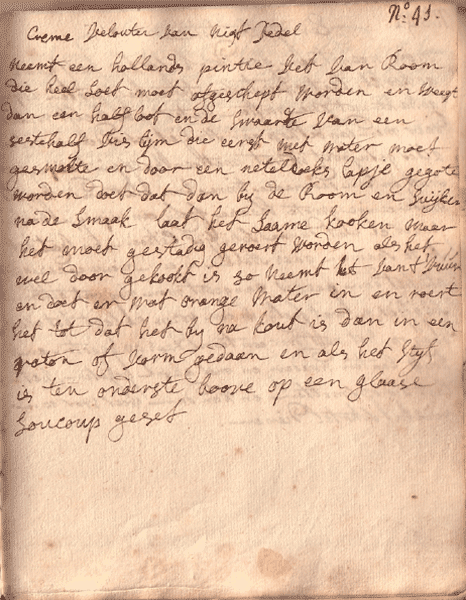 No. 41.
Creme Velouter van Nigt Tedel
Neemt een hollands pintie Let van Room
die heel soet moet afgeschept worden en weegt
dan een half loot en de swaarte van een
sestehalf vis lijm die eerst met water moet
gesmolte en door een neteldoeks lapje gegote
worden doet dat dan by de Room en suijker
na de smaak laat het saame kooken maar
het moet gestadig geroert worden als het
wel door gekookt is so neemt het van't vuur
en doet er wat orange water in en roert
het tot dat het by na kout is dan in een
of vorm gedaan en als het styf
is ten onderste boove op een glaase
soucoup geset